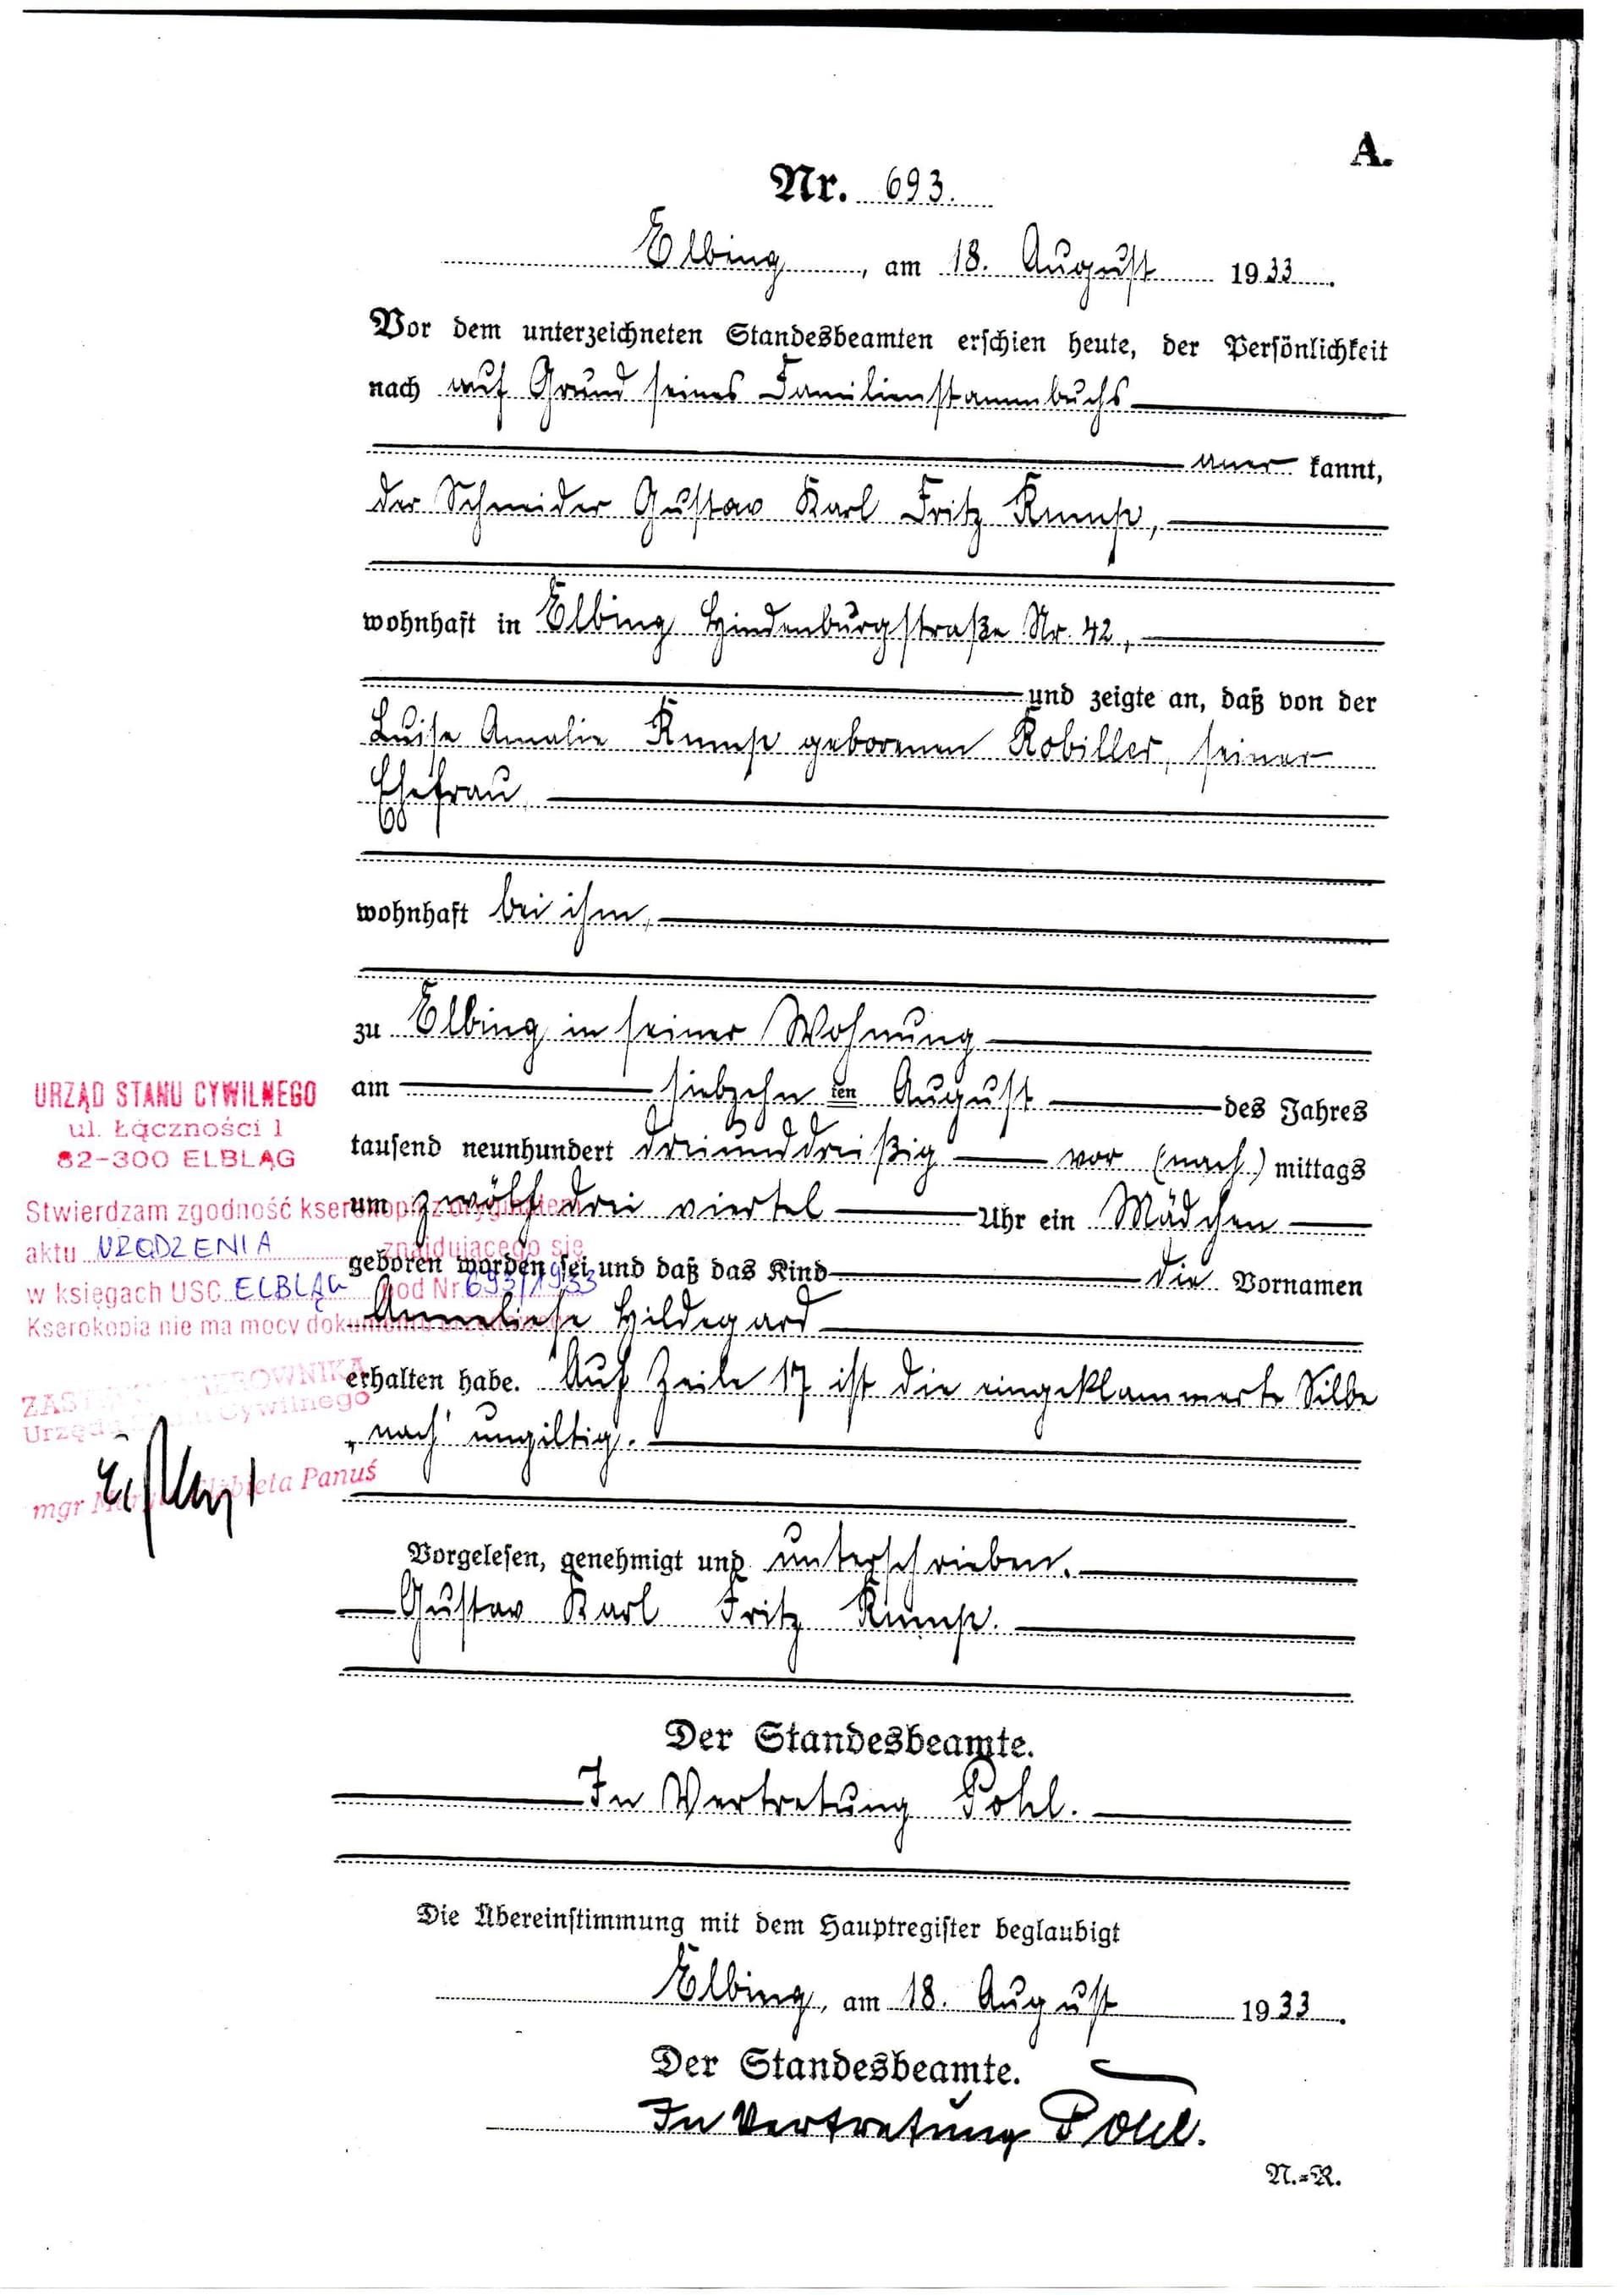 A.
Nr. 693.
Elbing, am 18. August 1933.
Vor dem unterzeichneten Standesbeamten erschien heute, der Persönlichkeit
nach auf Grund seines Familienstammbuchs
aner kannt,
der Schneider Gustav Karl Fritz
wohnhaft in Elbing Hindenburgstraße Nr. 42,
und zeigte an, daß von der
Luise Amalie geborenen Kobiller, seiner
Ehefrau,
wohnhaft bei ihm,
zu Elbing in seiner Wohnung
am siebzehn ten August des Jahres
tausend neunhundert dreiunddreißig vor (nach) mittags
um zwölf drei viertel Uhr ein Mädchen
geboren worden sei und daß das Kind die Vornamen
Anneliese Hildegard
erhalten habe. Auf Zeile 17 ist die eingeklammerte Silbe
„nach" ungiltig.
Vorgelesen, genehmigt und unterschrieben.
Gustav Karl Fritz
Der Standesbeamte.
In Vertretung Pohl.
Die Übereinstimmung mit dem Hauptregister beglaubigt
Elbing, am 18. August 1933.
Der Standesbeamte.
In Vertretung Pohl.
N.=R.
URZĄD STANU CYWILNEGO
ul. Łączności 1
82-300 ELBLĄG
Stwierdzam zgodność kserokopii z oryginałem
aktu URODZENIA znajdującego się
w księgach USC ELBLĄG pod Nr 693/1933
Kserokopia nie ma mocy dokumentu urzędowego
ZASTĘPCA KIEROWNIKA
Urzędu Stanu Cywilnego
mgr Elżbieta Panuś